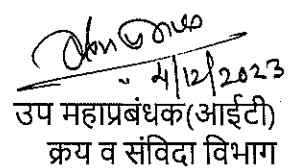 4/12/2023
उप महाप्रबंधक(आईटी)
क्रय व संविदा विभाग